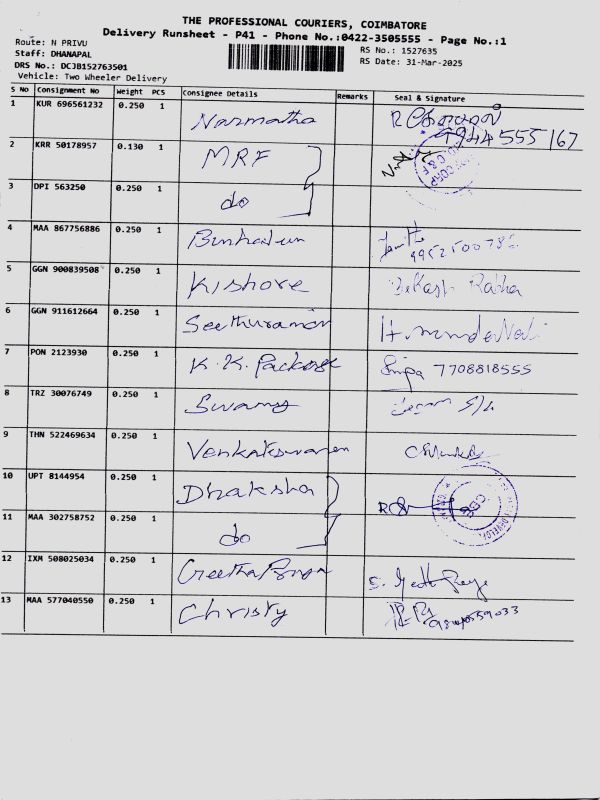 THE PROFESSIONAL COURIERS, COIMBATORE
Delivery Runsheet - P41 - Phone No.:0422-3505555 - Page No.:1
Route: N PRIVU
RS No.: 1527635
Staff: DHANAPAL
RS Date: 31-Mar-2025
DRS No.: DCJB152763501
Vehicle: Two Wheeler Delivery
S No Consignment No Weight PCS Consignee Details Remarks Seal & Signature
1 KUR 696561232 0.250 1 Narmatha
9944555167
2 KRR 50178957 0.130 1 MRF
3 DPI 563250 0.250 1 do
4 MAA 867756886 0.250 1
5 GGN 900839508 0.250 1 Kishore
6 GGN 911612664 0.250 1 Seethuraman
7 PON 2123930 0.250 1 K.K. Package 7708818555
8 TRZ 30076749 0.250 1 Swamy
9 THN 522469634 0.250 1 Venkateswaran
10 UPT 8144954 0.250 1 Dhaksha
11 MAA 302758752 0.250 1 do
12 IXM 508025034 0.250 1
13 MAA 577040550 0.250 1 Christy